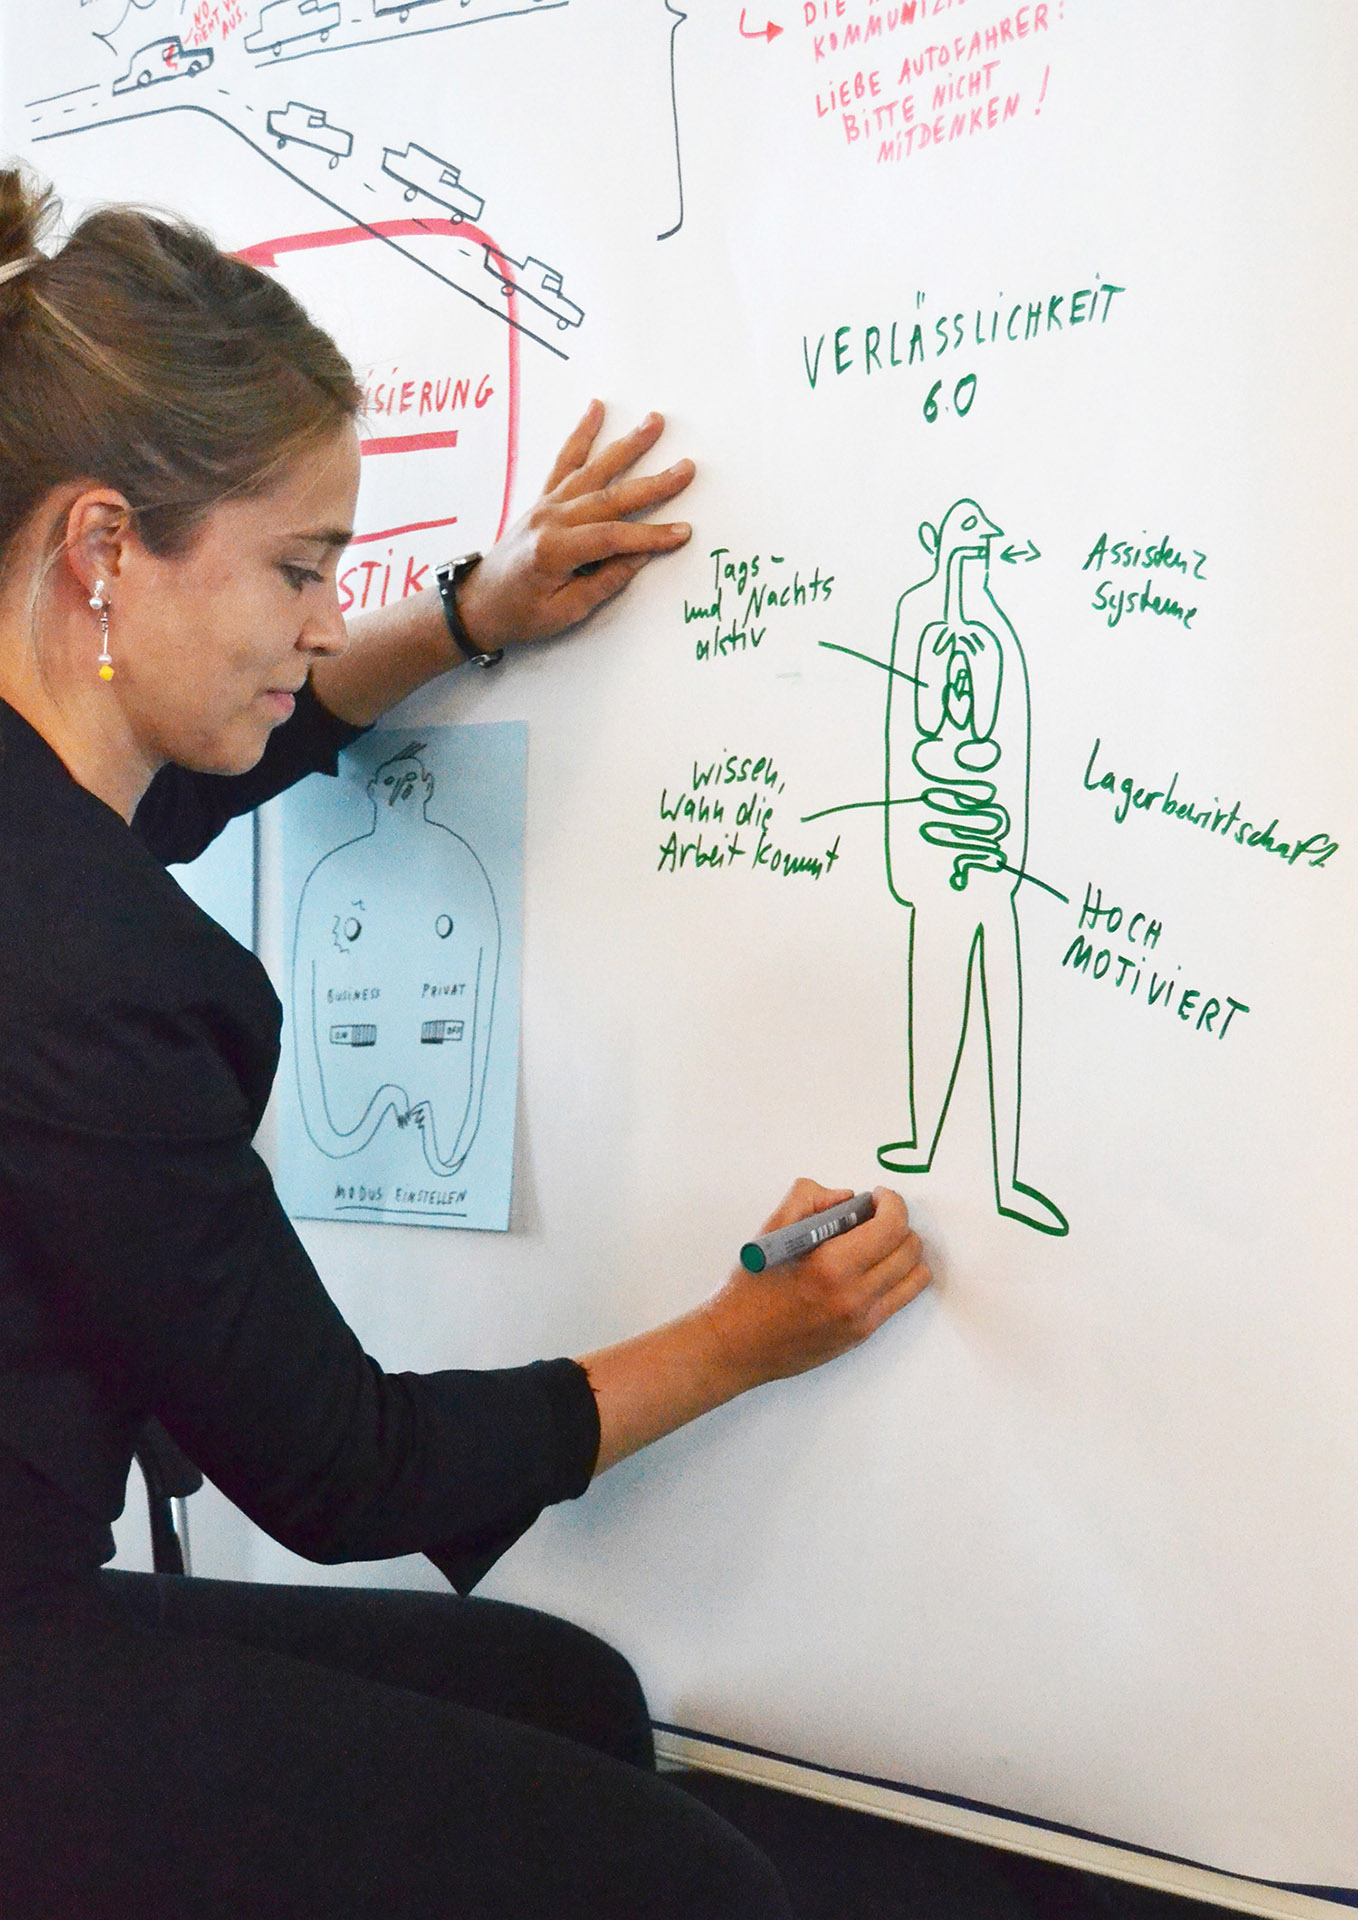 NO
AUS.
DIE
LIEBE AUTOFAHRER:
BITTE NICHT
MITDENKEN!
VERLÄSSLICHKEIT
6.0
ISIERUNG
STIK
Tags-
und Nachts
aktiv
Assistenz
Systeme
wissen,
wann die
Arbeit kommt
Lagerbewirtschaft
HOCH
MOTIVIERT
BUSINESS PRIVAT
ON OFF
MODUS EINSTELLEN